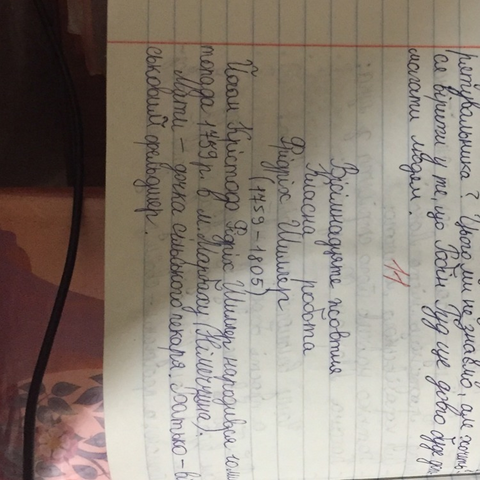 рятувальника? Цього ми не знаємо, але хочеть-
ся вірити у те, що Робін Гуд ще довго буде до-
магати людям.
11
Вісімнадцяте жовтня
Класна робота
Фрідріх Шиллер
(1759-1805)
Йоган Крістоф Фрідріх Шиллер народився 10 лис
топада 1759 р. в м. Марбаху (Німеччина).
Мати - дочка сільського пекаря. Батько - ві
ськовий фельдшер.